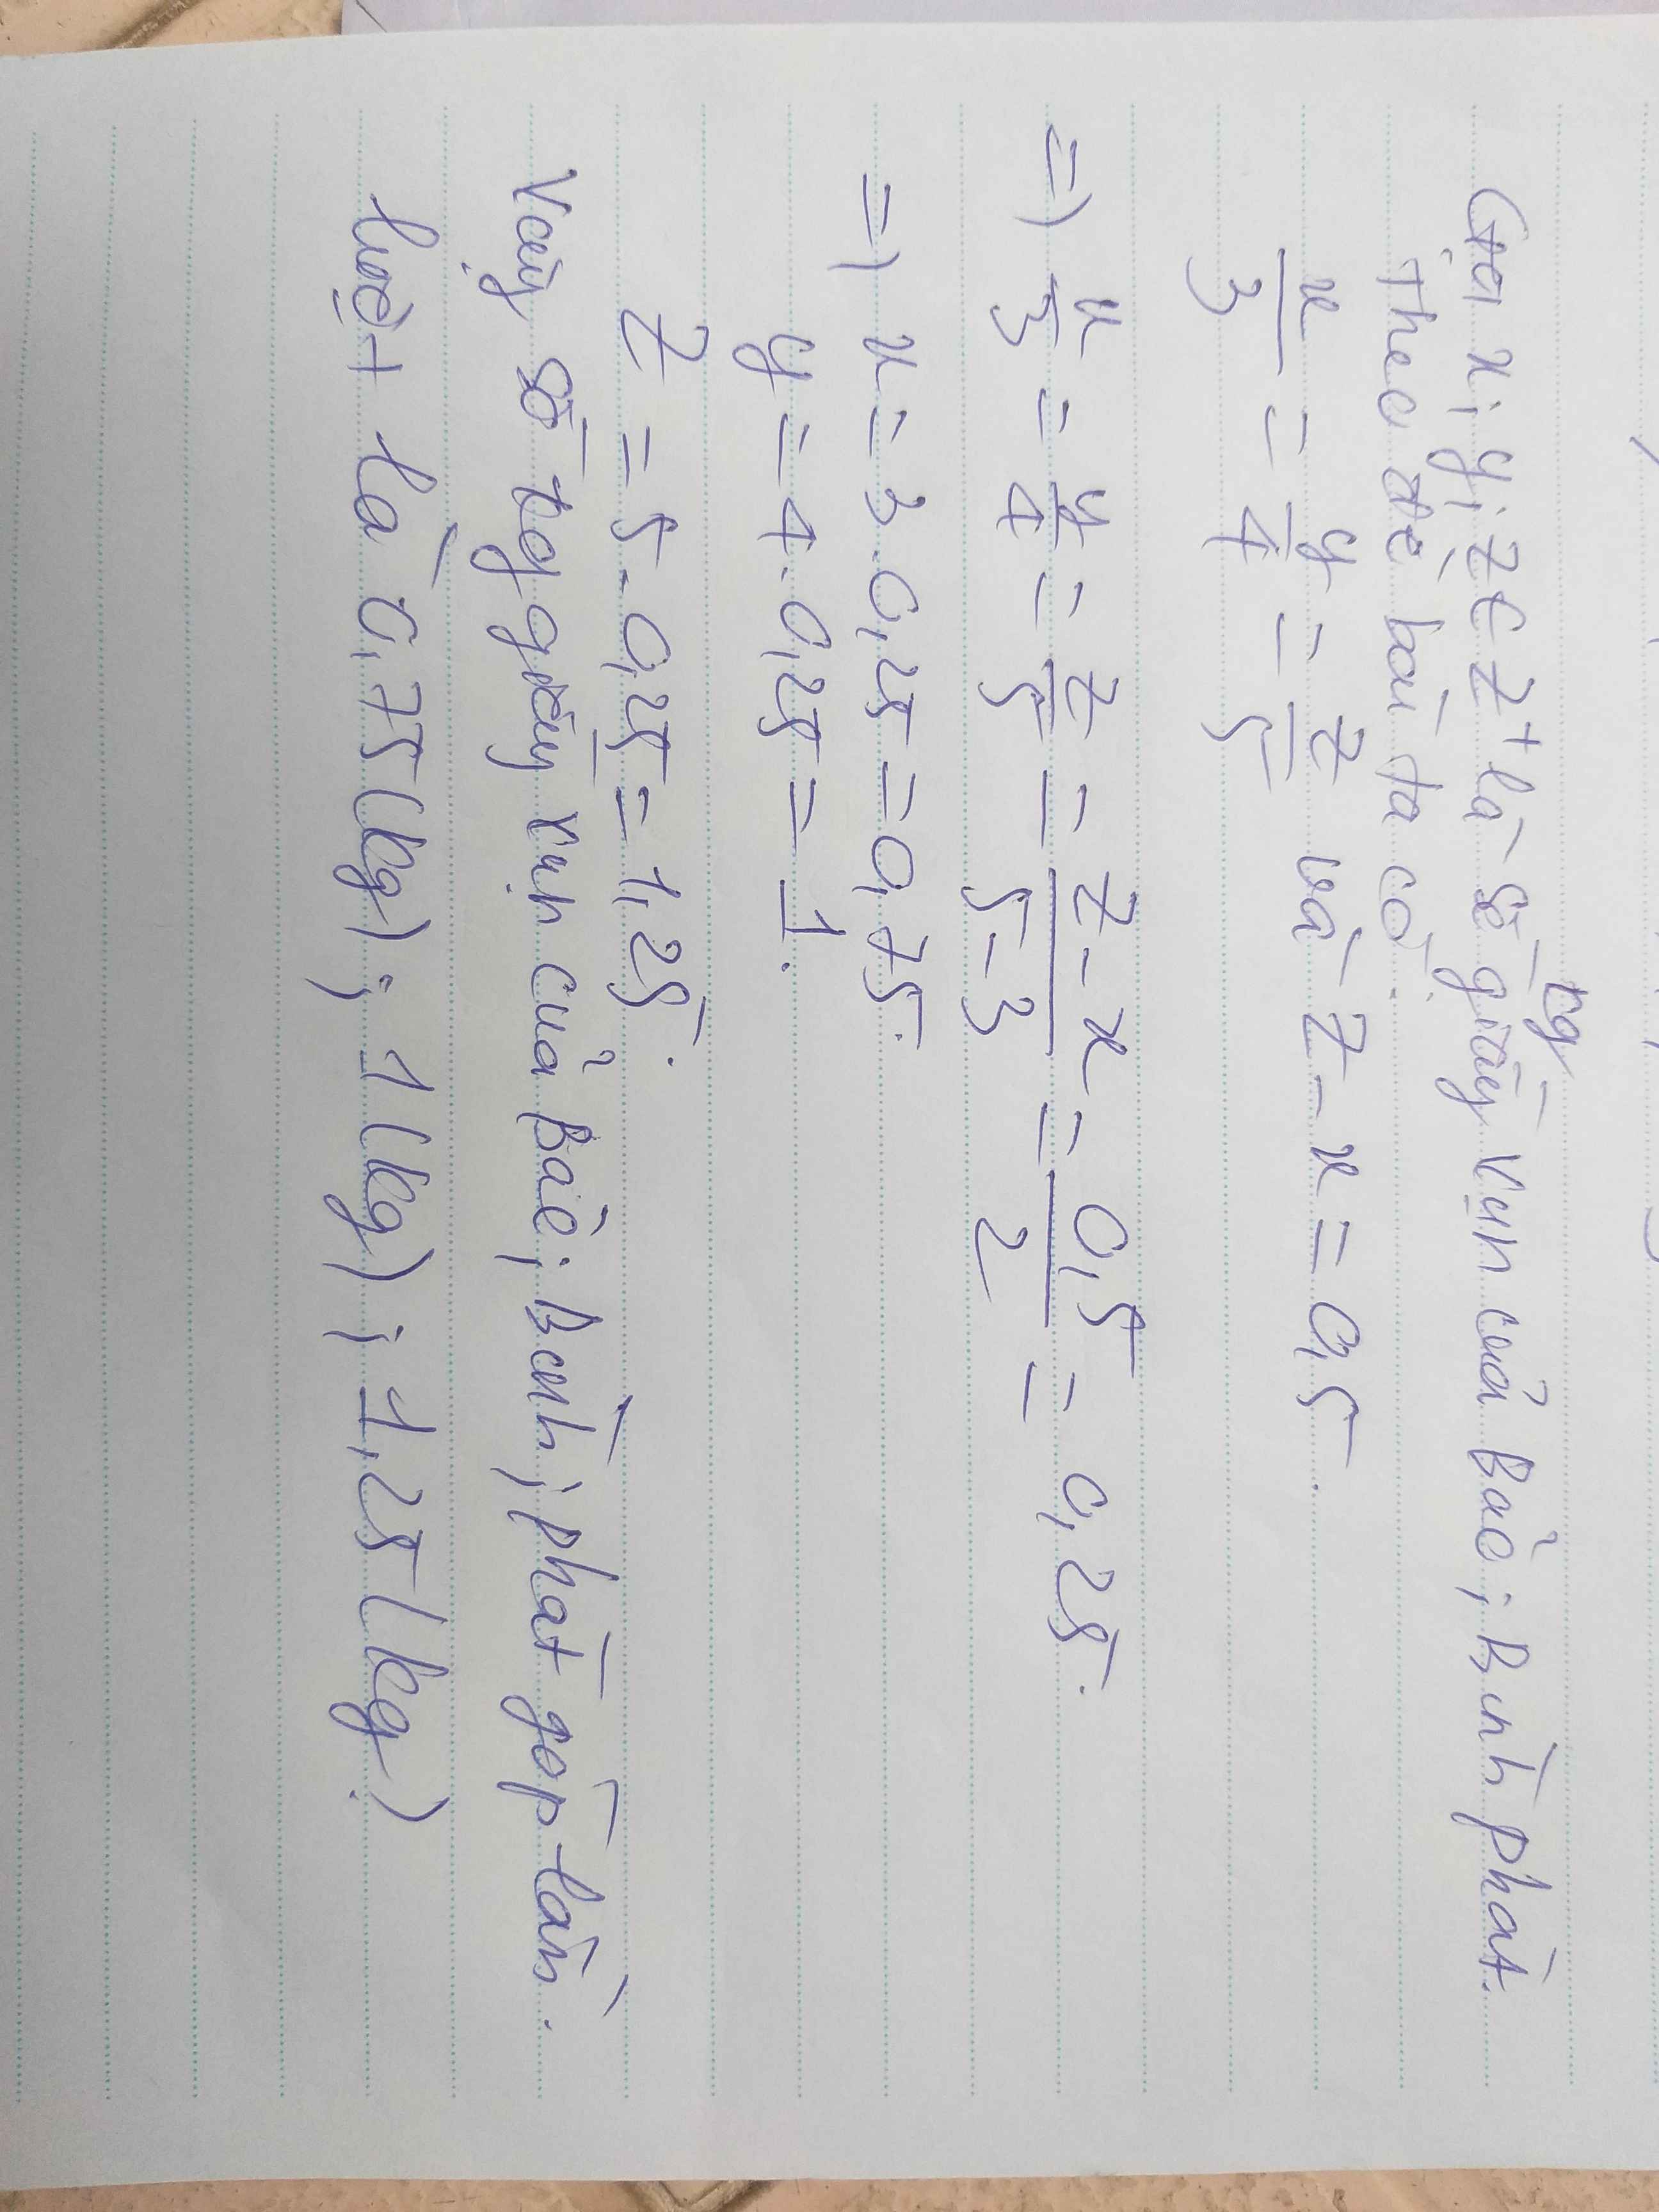 Gọi x; y; z ∈ Z⁺ là số kg giấy vụn của Bảo; Bình phát.
Theo đề bài ta có.
x/3 = y/4 = z/5 và z - x = 0,5.
=) x/3 = y/4 = z/5 = z-x/5-3 = 0,5/2 = 0,25.
=) x = 3.0,25 = 0,75.
y = 4.0,25 = 1.
z = 5.0,25 = 1,25.
Vậy số kg giấy vụn của Bảo; Bình; phát góp lần.
lượt là 0,75 (kg); 1 (kg); 1,25 (kg)